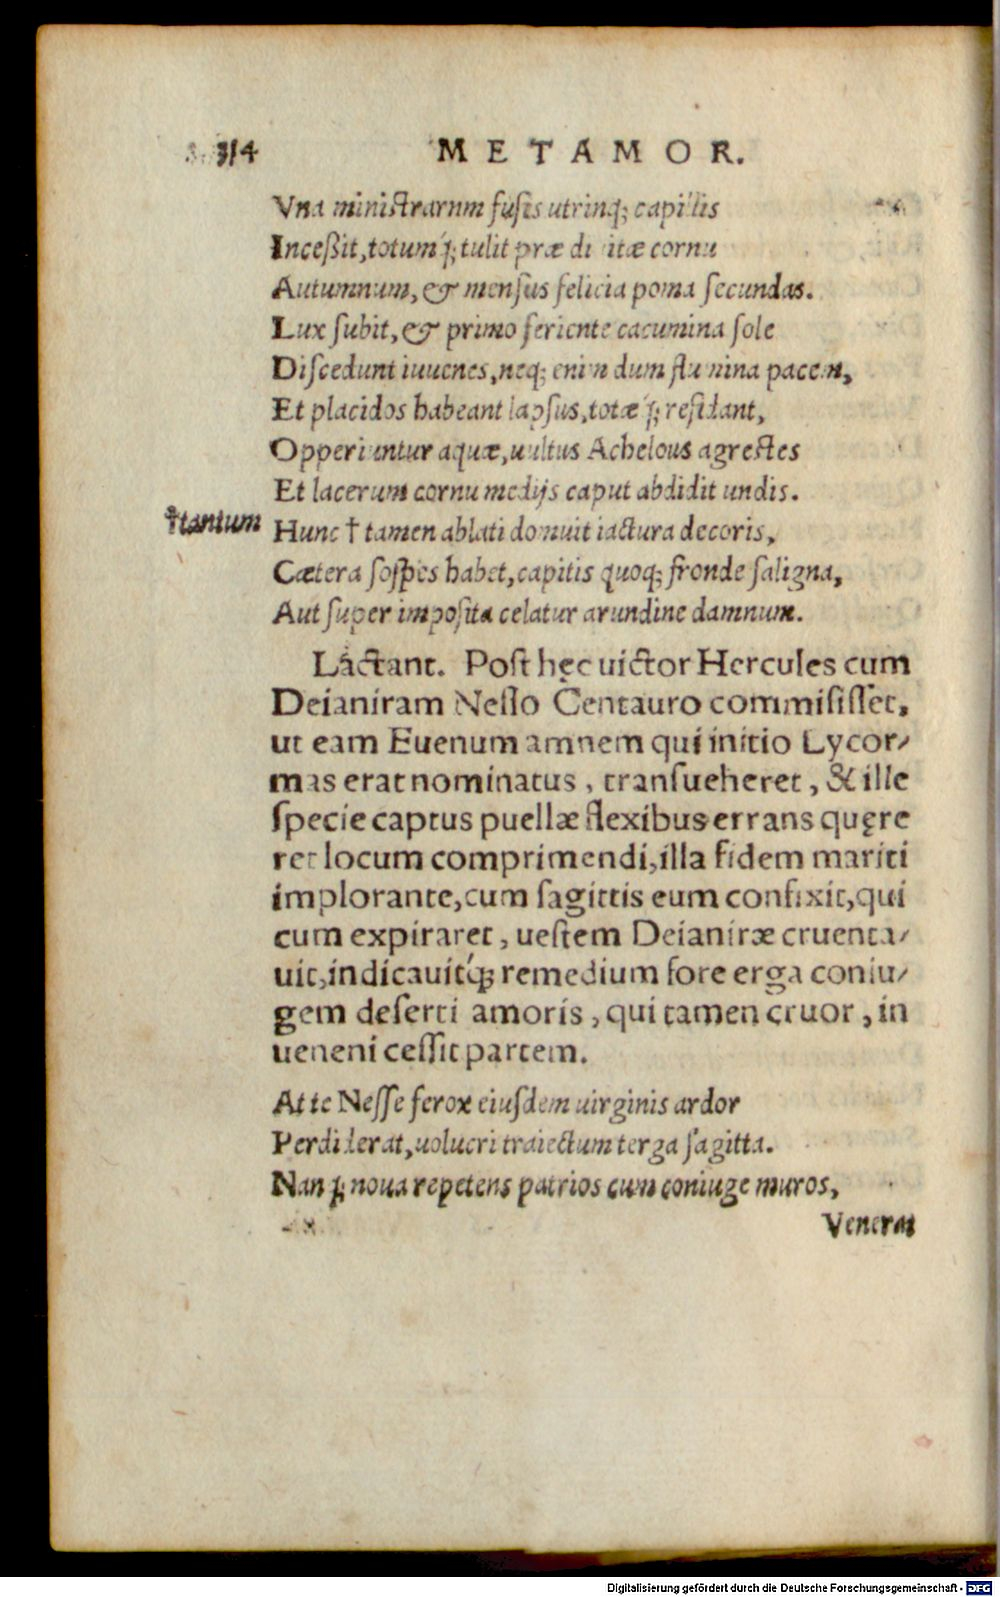 314 METAMOR.
Vna ministrarum fusis utrinq; capillis
Inceßit, totumq́; tulit prædiuitæ cornu
Autumnum, & mensus felicia poma secundas.
Lux subit, & primo feriente cacumina sole
Discedunt iuuenes, neq; enim dum flumina pacem,
Et placidos habeant lapsus, totæq́; residant,
Opperiuntur aquæ, uultus Achelous agrestes
Et lacerum cornu medijs caput abdidit undis.
†tantum Hunc † tamen ablati domuit iactura decoris,
Cætera sospes habet, capitis quoq; fronde saligna,
Aut super imposita celatur arundine damnum.
Láctant. Post hęc uictor Hercules cum
Deianiram Nesso Centauro commisisset,
ut eam Euenum amnem qui initio Lycor/
mas erat nominatus, transueheret, & ille
specie captus puellæ flexibus errans quęre
ret locum comprimendi, illa fidem mariti
implorante, cum sagittis eum confixit, qui
cum expiraret, uestem Deianiræ cruenta/
uit, indicauitq́; remedium fore erga coniu/
gem deserti amoris, qui tamen cruor, in
ueneni cessit partem.
At te Nesse ferox eiusdem uirginis ardor
Perdiderat, uolucri traiectum terga sagitta.
Nanq́; noua repetens patrios cum coniuge muros,
Venerat
Digitalisierung gefördert durch die Deutsche Forschungsgemeinschaft - DFG